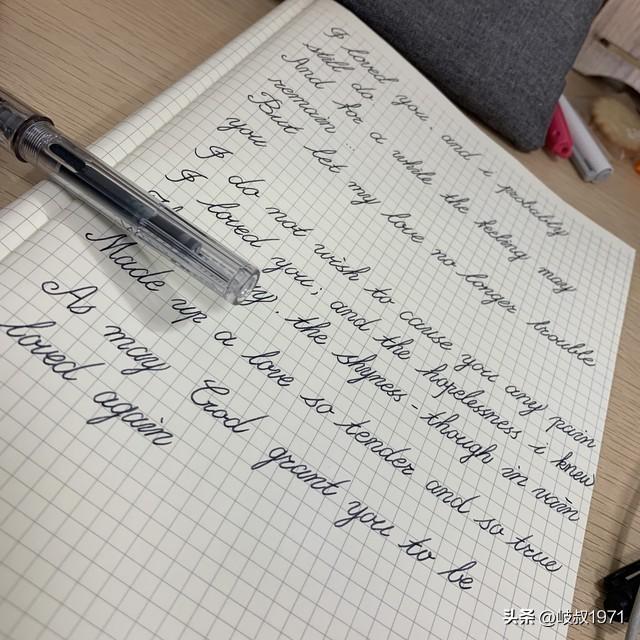 I loved you, and i probably
still do.
And for a while the feeling may
remain ...
But let my love no longer trouble
you
I do not wish to cause you any pain
I loved you; and the hopelessness i knew
the shyness - though in vain
Made up a love so tender and so true
As may God grant you to be
loved again
头条 @歧叔1971